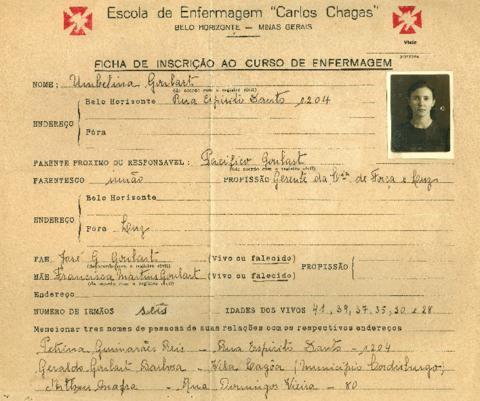 Escola de Enfermagem "Carlos Chagas"
BELO HORIZONTE — MINAS GERAIS
Visto
FICHA DE INSCRIÇÃO AO CURSO DE ENFERMAGEM
NOME: Umbelina Goulart
(de acordo com o registro civil)
Belo Horizonte Rua Espirito Santo 1204
ENDEREÇO
Fóra
PARENTE PROXIMO OU RESPONSAVEL: Pacifico Goulart
(de acordo com o registro civil)
PARENTESCO irmão PROFISSÃO Gerente da Cia de Força e Luz
Belo Horizonte
ENDEREÇO
Fóra Luz
PAE José G Goulart (Vivo ou falecido) PROFISSÃO
(de acordo com o registro civil)
MÃE Francisca Martins Goulart (Vivo ou falecido)
(de acordo com o registro civil)
Endereço
NUMERO DE IRMÃOS seis IDADES DOS VIVOS 41, 39, 37, 35, 30 e 28
Mencionar tres nomes de pessoas de suas relações com os respectivos endereços
Petrina Guimarães Reis — Rua Espirito Santo — 1204
Geraldo Goulart Barbosa — Vila Lagôa (Municipio Cordisburgo)
Rua Domingos Vieira — 80